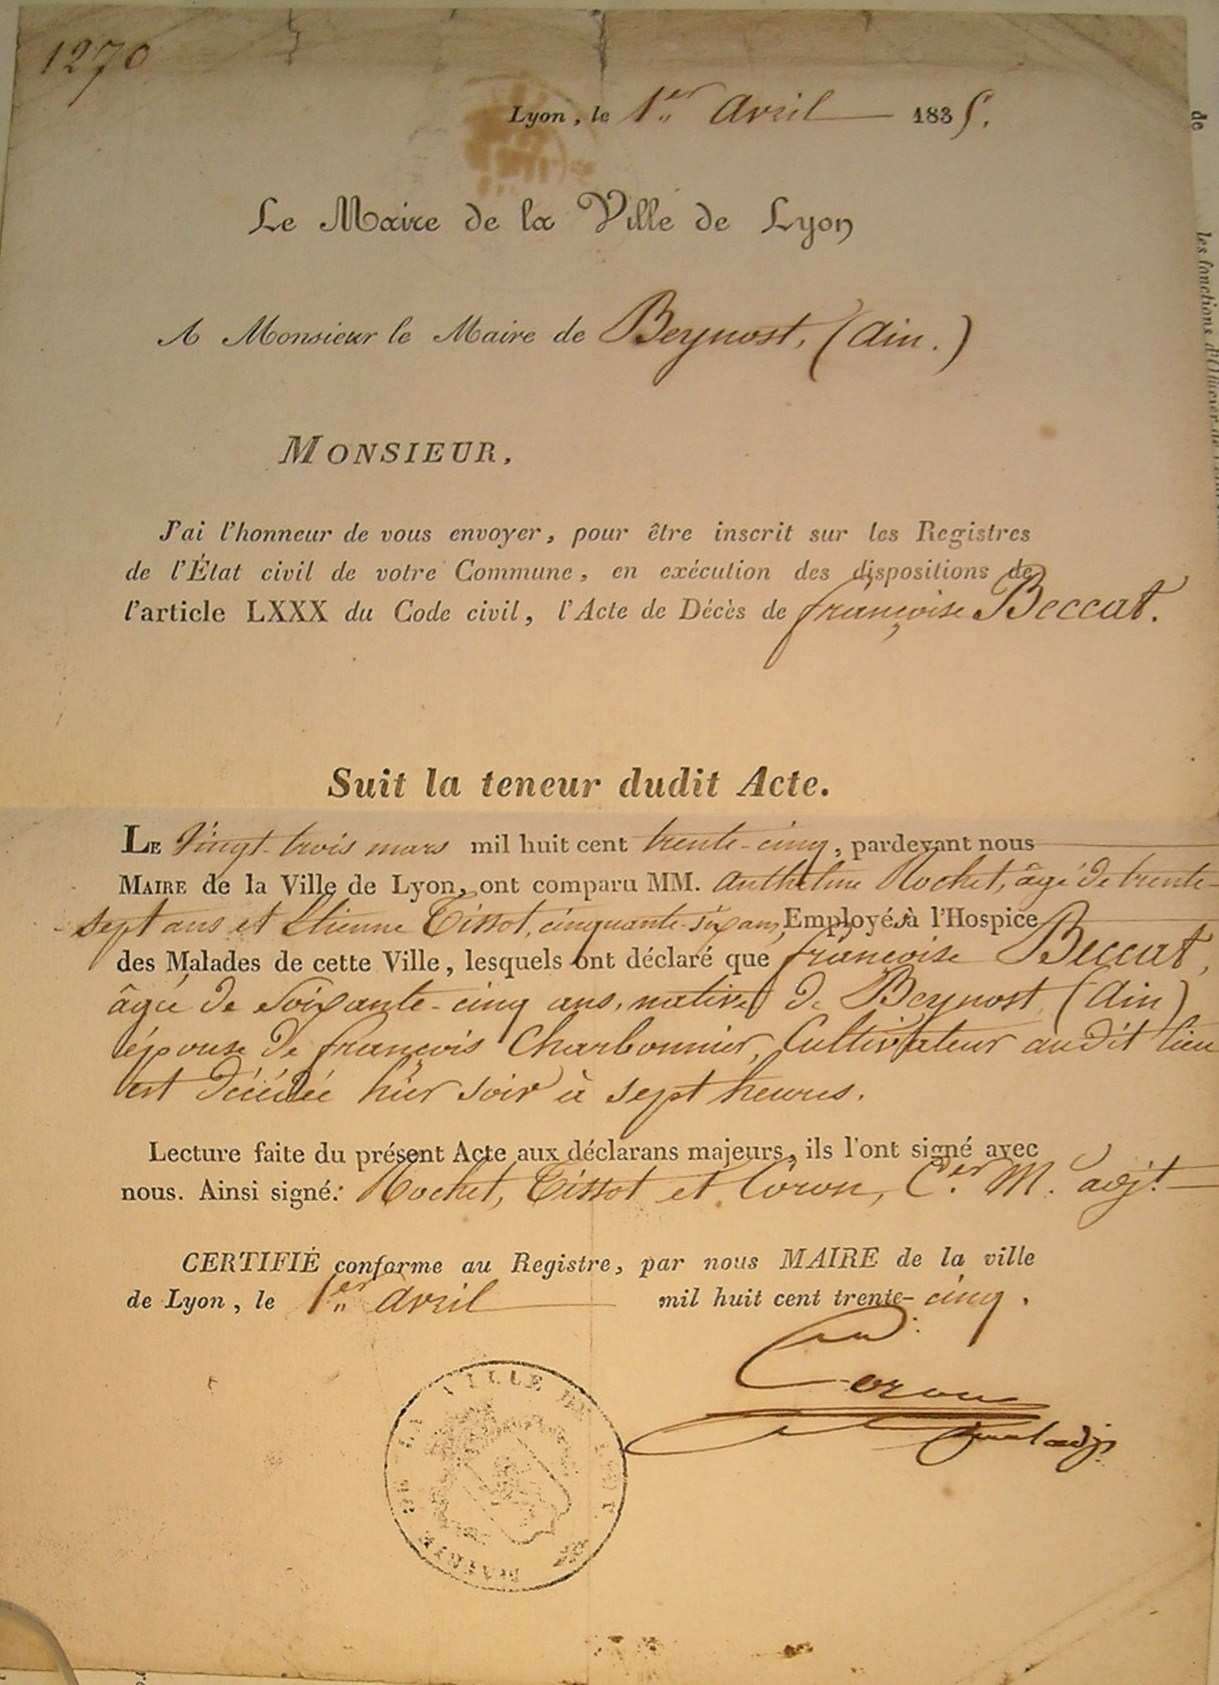 1270
Lyon, le 1er Avril 1835.
Le Maire de la Ville de Lyon
A Monsieur le Maire de Beynost, (Ain.)
MONSIEUR,
J'ai l'honneur de vous envoyer, pour être inscrit sur les Registres
de l'État civil de votre Commune, en exécution des dispositions de
l'article LXXX du Code civil, l'Acte de Décès de françoise Beccat.
Suit la teneur dudit Acte.
LE Vingt-trois mars mil huit cent trente-cinq, pardevant nous
MAIRE de la Ville de Lyon, ont comparu MM. Anthelme Rochet, âgé de trente-
sept ans et Etienne Tissot, cinquante-six ans, Employés à l'Hospice
des Malades de cette Ville, lesquels ont déclaré que françoise Beccat,
âgée de soixante-cinq ans, native de Beynost (Ain)
épouse de françois Charbonnier, Cultivateur audit lieu
est décédée hier soir à sept heures.
Lecture faite du présent Acte aux déclarans majeurs, ils l'ont signé avec
nous. Ainsi signé: Rochet, Tissot et Coron, Cer M. adjt
CERTIFIÉ conforme au Registre, par nous MAIRE de la ville
de Lyon, le 1er Avril mil huit cent trente-cinq.
Coron
adj.
MAIRIE DE LA VILLE DE LYON
de
les fonctions d'Officier de l'